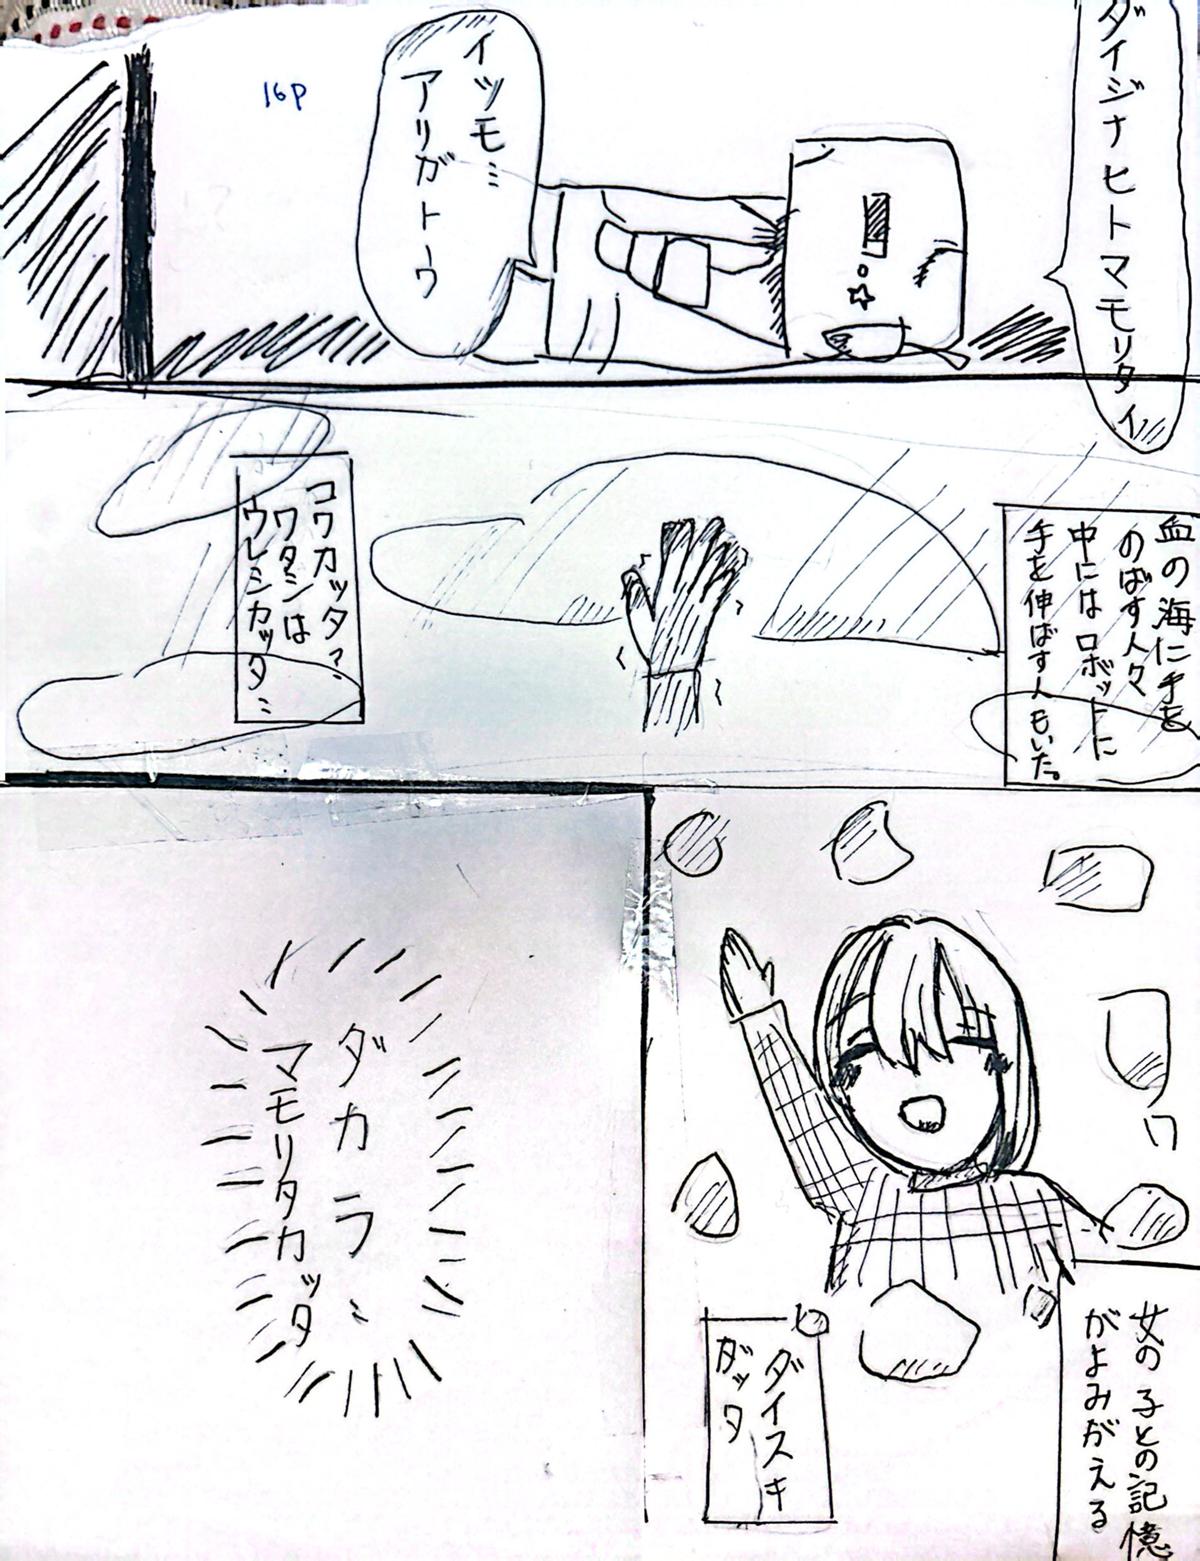 ダイジナヒトマモリタイ
イツモ…
アリガトーウ
16P
血の海に手を
のばす人々
中にはロボットに
手を伸ばす人もいた。
コワカッタ…
ワタシは
ウレシカッタ…
女の子との記憶
がよみがえる
ダイスキ
ダッタ
ダカラ…
マモリタカッタ